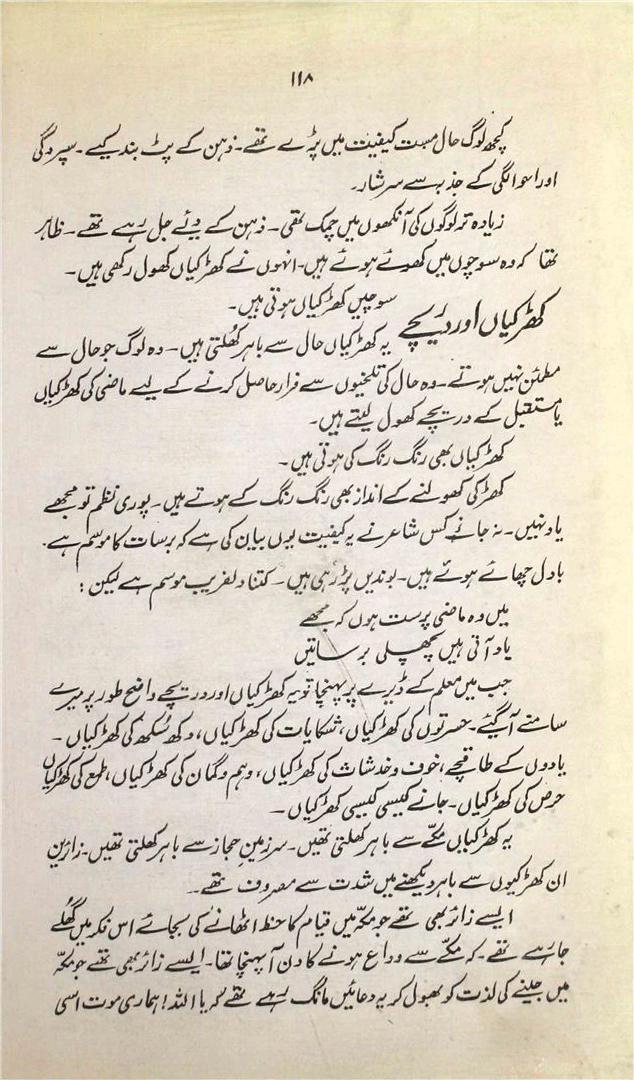 ۱۱۸
کچھ لوگ حال مست کیفیت میں پڑے تھے۔ ذہن کے پٹ بند کیے۔ سپردگی
اور اسوالگی کے جذبہ سے سرشار۔
زیادہ تر لوگوں کی آنکھوں میں چمک تھی۔ ذہن کے دیئے جل رہے تھے۔ ظاہر
تھا کہ وہ سوچوں میں کھوئے ہوئے ہیں۔ انہوں نے کھڑکیاں کھول رکھی ہیں۔
سوچیں کھڑکیاں ہوتی ہیں۔
کھڑکیاں اور دریچے
یہ کھڑکیاں حال سے باہر کھُلتی ہیں۔ وہ لوگ جو حال سے
مطمئن نہیں ہوتے۔ وہ حال کی تلخیوں سے فرار حاصل کرنے کے لیے ماضی کی کھڑکیاں
یا مستقبل کے دریچے کھول لیتے ہیں۔
کھڑکیاں بھی رنگ رنگ کی ہوتی ہیں۔
کھڑکی کھولنے کے انداز بھی رنگ رنگ کے ہوتے ہیں۔ پوری نظم تو مجھے
یاد نہیں۔ نہ جانے کس شاعر نے یہ کیفیت یوں بیان کی ہے کہ برسات کا موسم ہے۔
بادل چھائے ہوئے ہیں۔ بوندیں پڑ رہی ہیں۔ کتنا دلفریب موسم ہے لیکن :
میں وہ ماضی پرست ہوں کہ مجھے
یاد آتی ہیں پچھلی برساتیں
جب میں معلم کے ڈیرے پر پہنچا تو یہ کھڑکیاں اور دریچے واضح طور پر میرے
سامنے آ گئے۔ حسرتوں کی کھڑکیاں، شکایات کی کھڑکیاں، دکھ سُکھ کی کھڑکیاں۔
یادوں کے طاقچے، خوف و خدشات کی کھڑکیاں، وہم و گمان کی کھڑکیاں، طمع کی کھڑکیاں
حرص کی کھڑکیاں۔ جانے کیسی کیسی کھڑکیاں۔
یہ کھڑکیاں مکّے سے باہر کھلتی تھیں۔ سرزمینِ حجاز سے باہر کھلتی تھیں۔ زائرین
ان کھڑکیوں سے باہر دیکھنے میں شدت سے مصروف تھے۔
ایسے زائر بھی تھے جو مکّہ میں قیام کا حظ اٹھانے کی بجائے اس فکر میں گھُلے
جا رہے تھے۔ کہ مکّے سے وداع ہونے کا دن آ پہنچا تھا۔ ایسے زائر بھی تھے جو مکہّ
میں جینے کی لذت کو بھول کر یہ دعائیں مانگ رہے تھے کہ یا اللہ! ہماری موت اسی